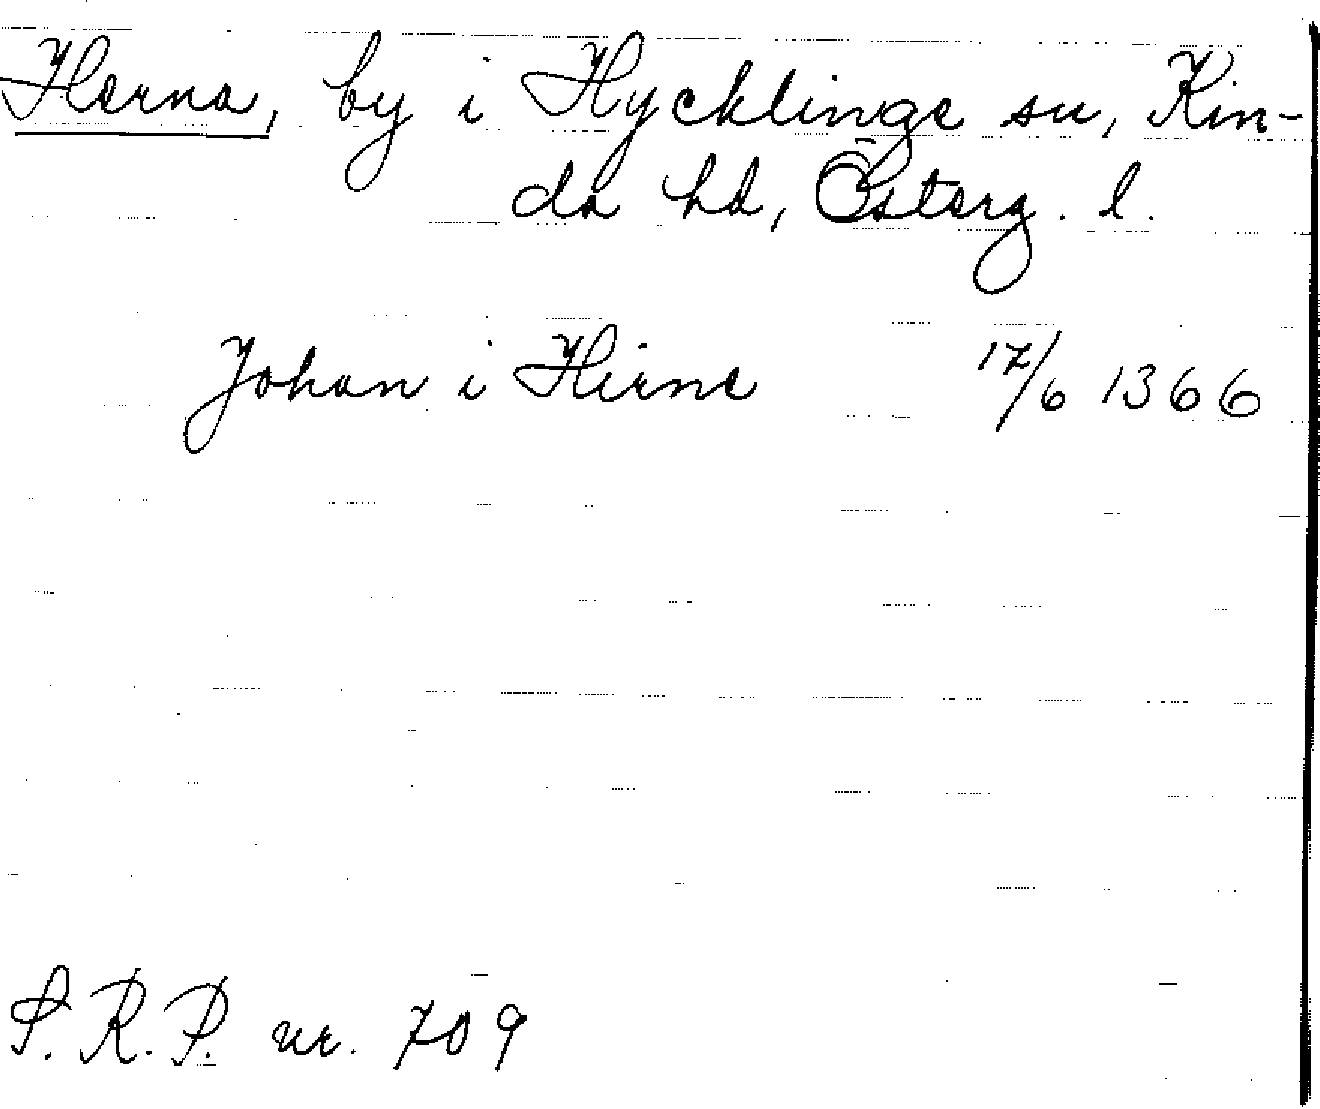 Horna, by i Hycklinge sn, Kin-
da hd, Österg. l.
Johan i Hirne 17/6 1366
S.R.P. nr. 709